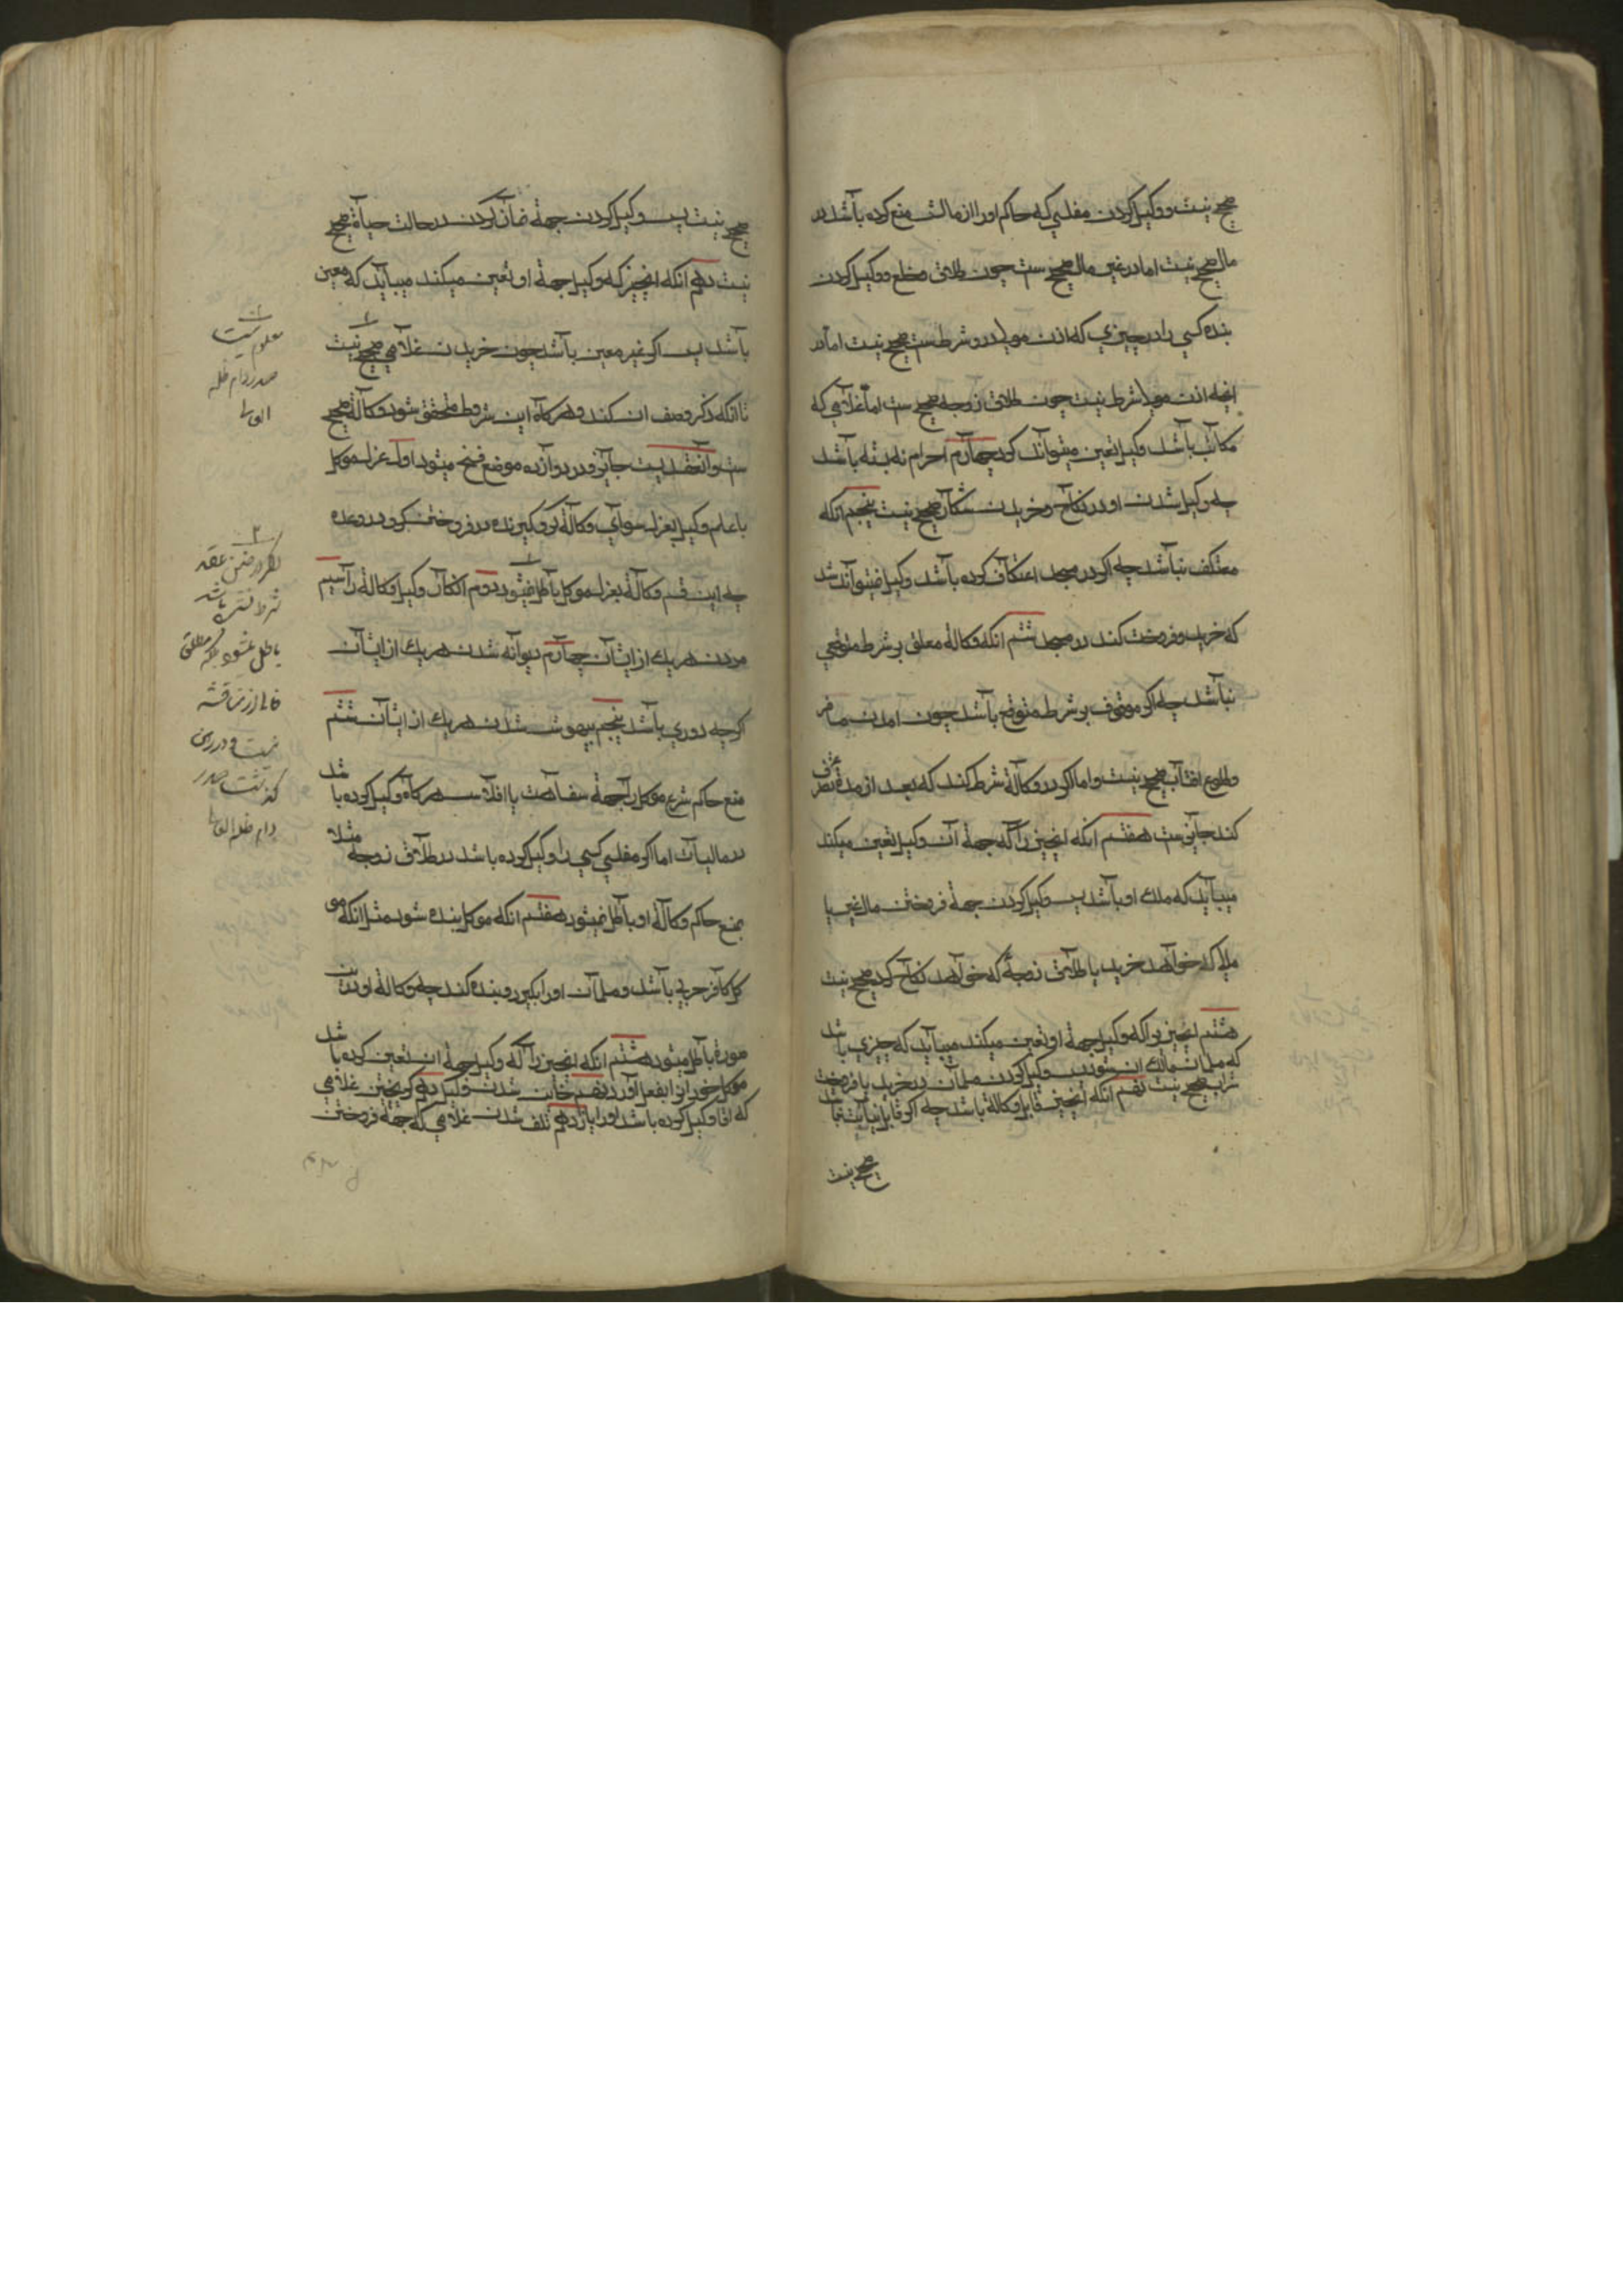 صحیح نیست و وکیل کردن مفلسی که حاکم او را از مالش منع کرده باشد در
مال صحیح نیست اما در غیر مال صحیح ست چون طلاق و خلع و وکیل کردن
بنده کسی را در چیزی که اذن مولی در و شرط ست صحیح نیست اما در
انچه اذن مولا شرط نیست چون طلاق زوجه صحیح ست اما غلامی که
مکاتب باشد وکیل تعین میتواند کرد چهارم احرام نه بسته باشد
چه وکیل شدن او در نکاح و خریدن شکار صحیح نیست پنجم انکه
معتکف نباشد چه اکر در مسجد اعتکاف کرده باشد وکیل نمیتواند شد
که خرید و فروخت کند در مسجد ششم انکه وکالة معلق بر شرط متوقعی
نباشد چه اکر موقوف بر شرط متوقع باشد چون امدن مسافر
و طلوع افتاب صحیح نیست و اما اکر در وکالة شرط کند که بعد از مدة تصرف
کند جایز ست هفتم انکه انچیز را که جهة آن وکیل تعین میکند
میباید که ملک او باشد پس وکیل کردن جهة فروختن مال غیر یا
ملا که خواهد خرید یا طلاق زوجهٔ که خواهد نکاح کرد صحیح نیست
هشتم انچیز را که وکیل جهة او تعین میکند میباید که چیزی باشد
که مسلمان مالک ان شود پس وکیل کردن مسلمان در خرید یا فروخت
شراب صحیح نیست نهم انکه انچیز قابل وکالة باشد چه اکر قابل نیابت نباشد
صحیح نیست
صحیح نیست پس وکیل کردن جهة نماز کردن در حالت حیاة صحیح
نیست دهم انکه انچیز که وکیل جهة او تعین میکند میباید که معین
باشد پس اکر غیر معین باشد چون خریدن غلامی صحیح نیست
تا انکه ذکر وصف ان کند و هرکاه این شروط متحقق شود وکالة صحیح
ست و آنعقدیست جایز و در دوازده موضع فسخ میشود اول عزل موکل
با علم وکیل بعزل سوای وکالة کرو کیرنده در فروختن کرو در وعده
چه این قسم وکالة بعزل موکل باطل نمیشود دوم انکار وکیل وکالة را سیم
مردن هریک از ایشان چهارم دیوانه شدن هریک از ایشان
کرچه دوری باشد پنجم بیهوش شدن هریک از ایشان ششم
منع حاکم شرع موکل را جهة سفاهت یا افلاس هرکاه وکیل کرده باشد
در مالیات اما اکر مفلسی کسی را وکیل کرده باشد در طلاق زوجه مثلا
بمنع حاکم وکالة او باطل نمیشود هفتم انکه موکل بنده شود مثل انکه مو
کل کافر حربی باشد و مسلمان او را بکیرد و بنده کند چه وکالة او درین
صورة باطل میشود هشتم انکه انچیز را که وکیل جهة ان تعین کرده باشد
موکل خود انرا بفعل آورد نهم خاین شدن وکیل دهم کریختن غلامی
که اقا وکیل کرده باشد او را یازدهم تلف شدن غلامی که جهة فروختن
معلوم نیست
صدر دام ظله
العالی
اکر در ضمن عقد
باطل نمیشود
صدر
دام ظله العالی